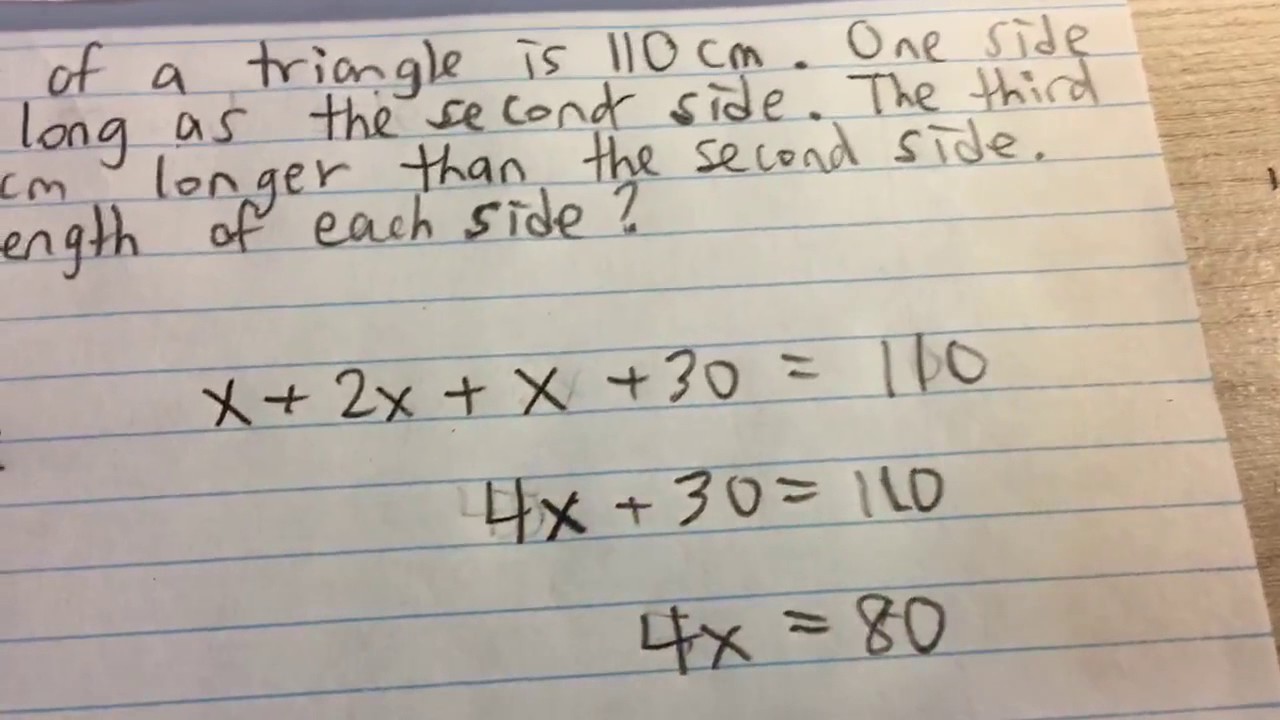 of a triangle is 110 cm. One side
long as the second side. The third
cm longer than the second side.
ength of each side?
x + 2x + x + 30 = 110
4x + 30 = 110
4x = 80